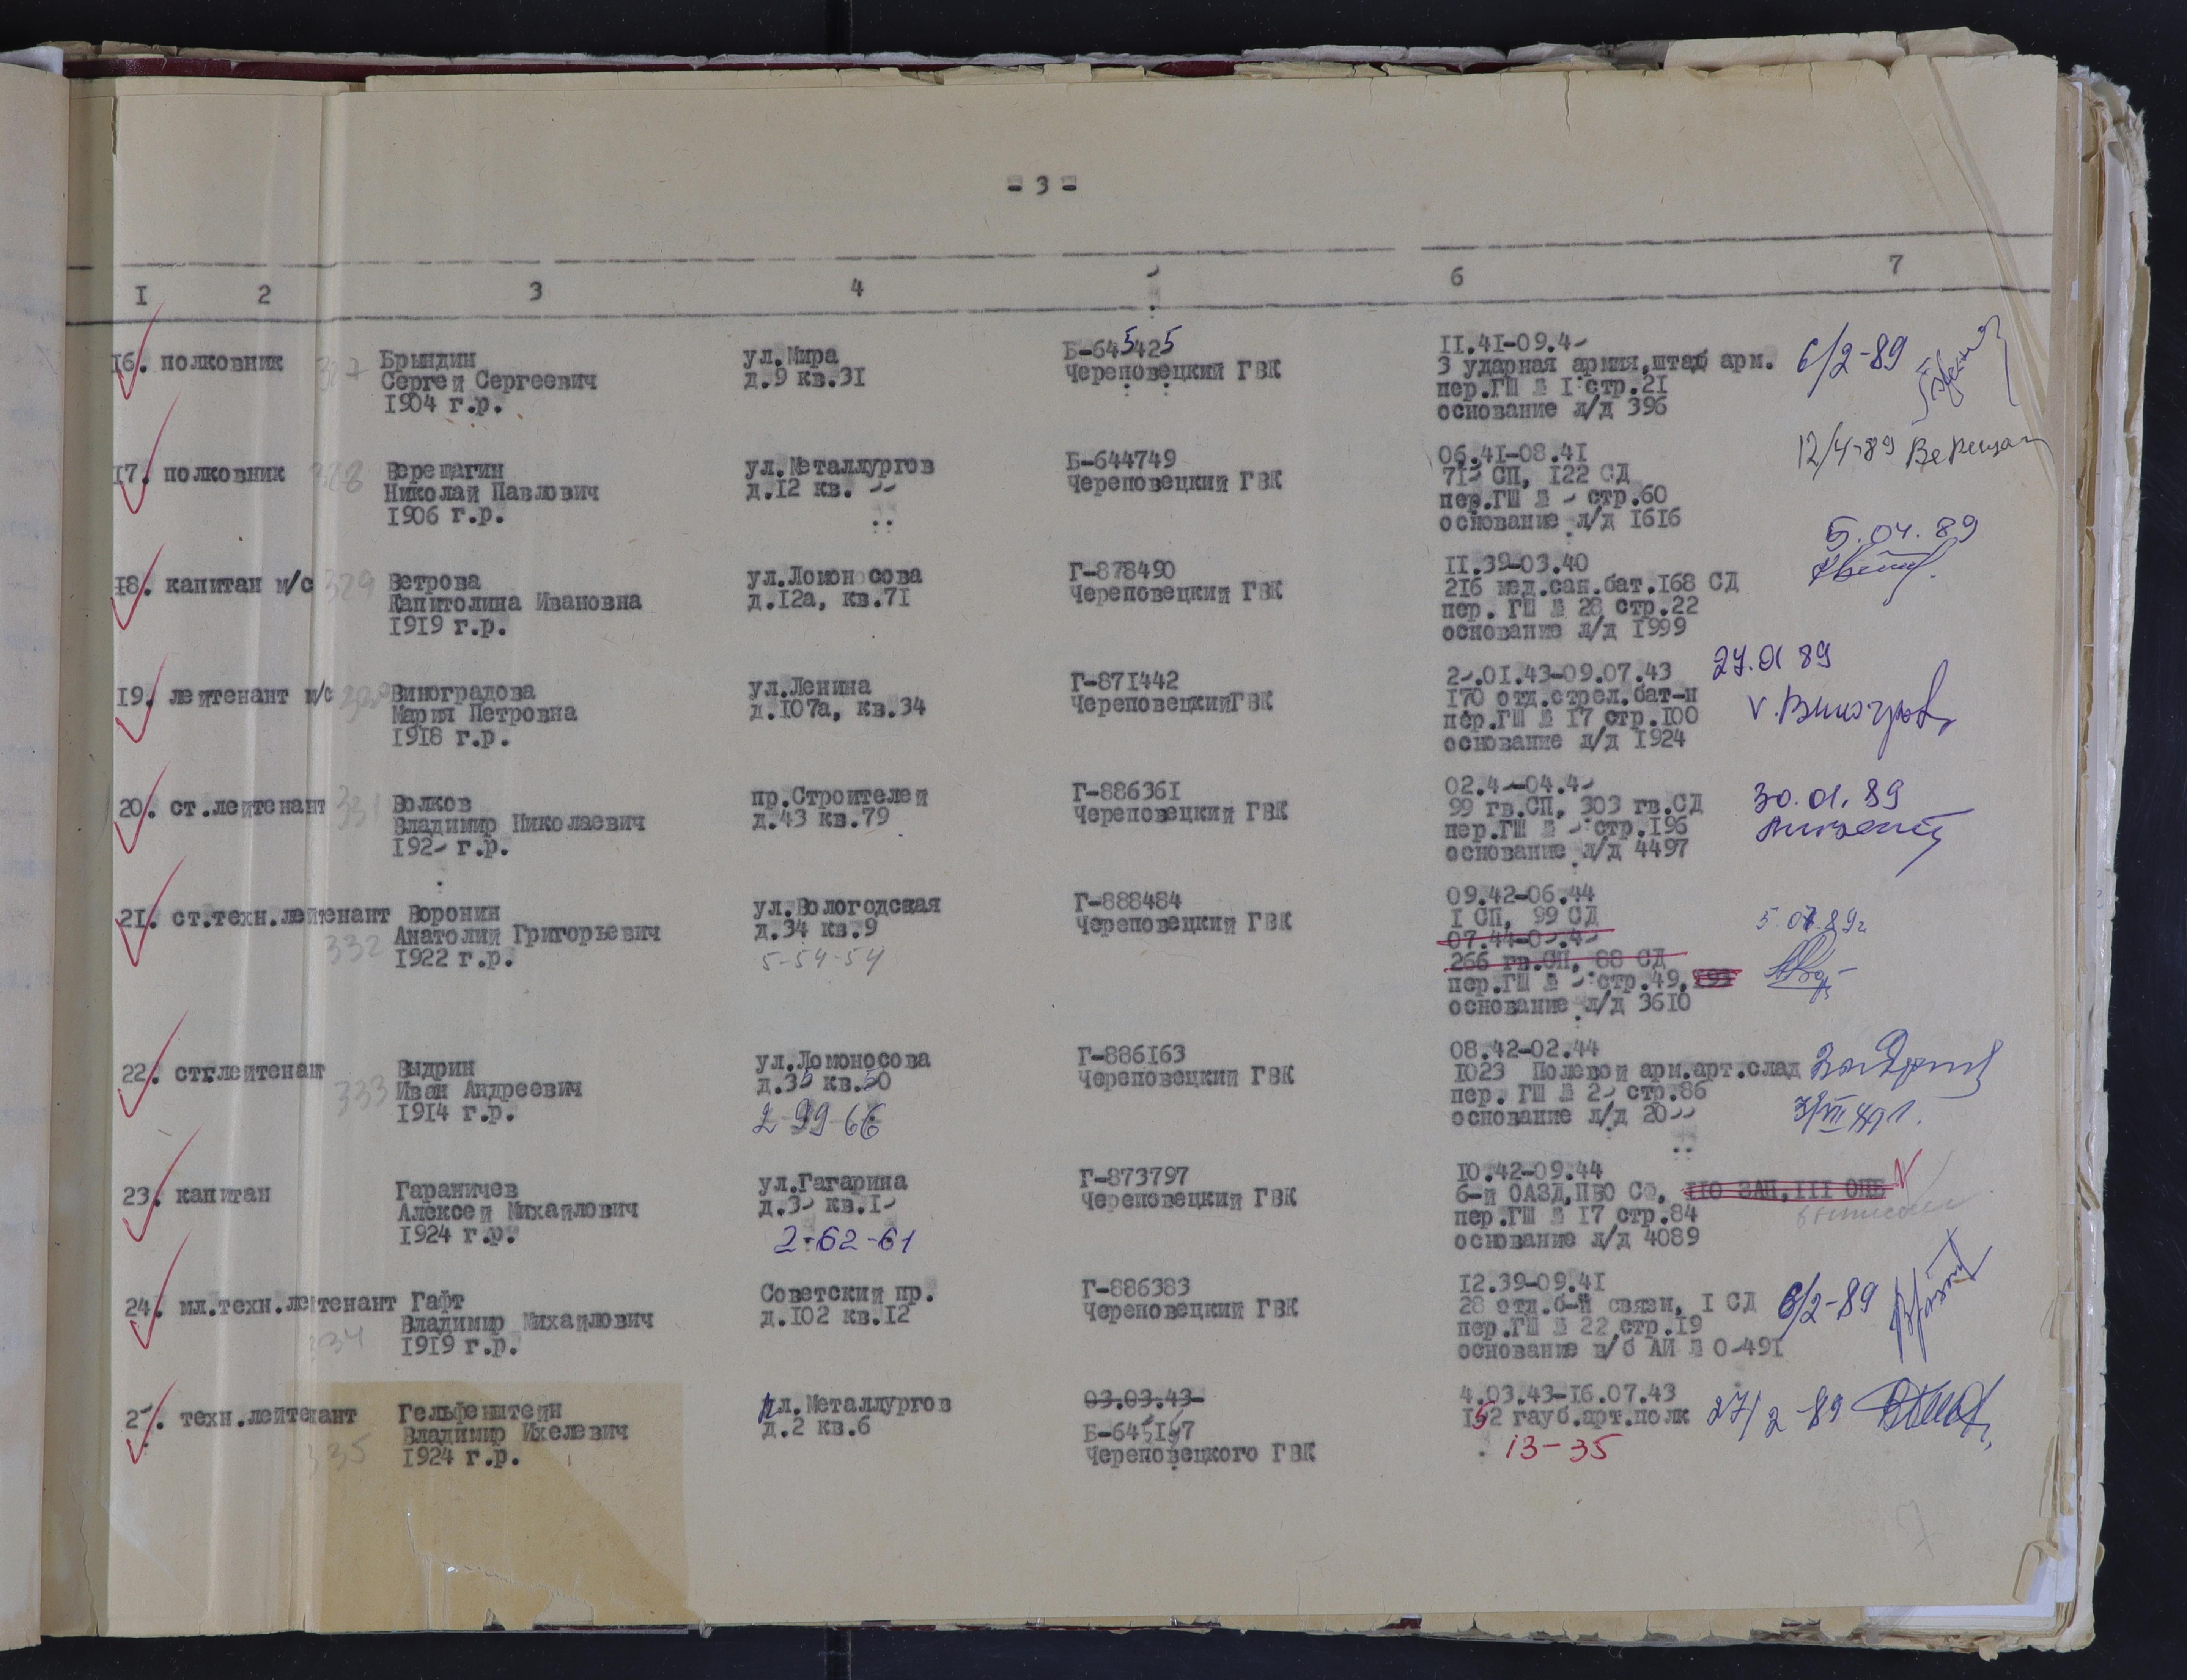 - 3 -
I 2 3 4 6 7
16. полковник 327 Брындин ул.Мира Б-645425 11.41-09.4 6/2-89
Сергей Сергеевич д.9 кв.31 Череповецкий ГВК 3 ударная армия,штаб арм.
1904 г.р. пер.ГШ № I стр.21
основание л/д 396
17. полковник 328 Верещагин ул.Металлургов Б-644749 06.41-08.41 12/4-89 Верещаг
Николай Павлович д.12 кв. Череповецкий ГВК 71 СП, 122 СД
1906 г.р. пер.ГШ № стр.60
основание л/д 1616
18. капитан м/с 329 Ветрова ул.Ломоносова Г-878490 11.39-03.40 5.04.89
Капитолина Ивановна д.12а, кв.71 Череповецкий ГВК 216 мед.сан.бат.168 СД
1919 г.р. пер. ГШ № 28 стр.22
основание л/д 1999
19. лейтенант м/с 330 Виноградова ул.Ленина Г-871442 2.01.43-09.07.43 27.01 89
Мария Петровна д.107а, кв.34 ЧереповецкийГВК 170 отд.стрел.бат-н
1918 г.р. пер.ГШ № 17 стр.100
основание л/д 1924
20. ст.лейтенант 331 Волков пр.Строителей Г-886361 02.4-04.4 30.01.89
Владимир Николаевич д.43 кв.79 Череповецкий ГВК 99 гв.СП, 303 гв.СД
192 г.р. пер.ГШ № стр.196
основание л/д 4497
21. ст.техн.лейтенант Воронин ул.Вологодская Г-888484 09.42-06.44 5.07.89г
332 Анатолий Григорьевич д.34 кв.9 Череповецкий ГВК I СП, 99 СД
1922 г.р. 5-54-54 07.44-0.4
266 гв.СП, 88 СД
пер.ГШ № стр.49,
основание л/д 3610
22. ст.лейтенант Выдрин ул.Ломоносова Г-886163 08.42-02.44
333 Иван Андреевич д.35 кв.50 Череповецкий ГВК 1023 Полевой арм.арт.склад
1914 г.р. 2-99-66 пер. ГШ № 2 стр.86
основание л/д 20
23. капитан Гараничев ул.Гагарина Г-873797 10.42-09.44
Алексей Михайлович д.3 кв.1 Череповецкий ГВК 6-й ОАЗД,ПВО СФ, 110 ЗАП,III ОПБ
1924 г.р. 2-62-61 пер.ГШ № 17 стр.84
основание л/д 4089
24. мл.техн.лейтенант Гафт Советский пр. Г-886383 12.39-09.41 6/2-89
334 Владимир Михайлович д.102 кв.12 Череповецкий ГВК 28 отд.б-й связи, I СД
1919 г.р. пер.ГШ № 22 стр.19
основание в/б АИ № 0-491
25. техн.лейтенант Гельфенштейн пл.Металлургов 03.03.43- 4.03.43-16.07.43 27/2-89
335 Владимир Ихелевич д.2 кв.6 Б-645157 152 гауб.арт.полк
1924 г.р. Череповецкого ГВК 13-35
7